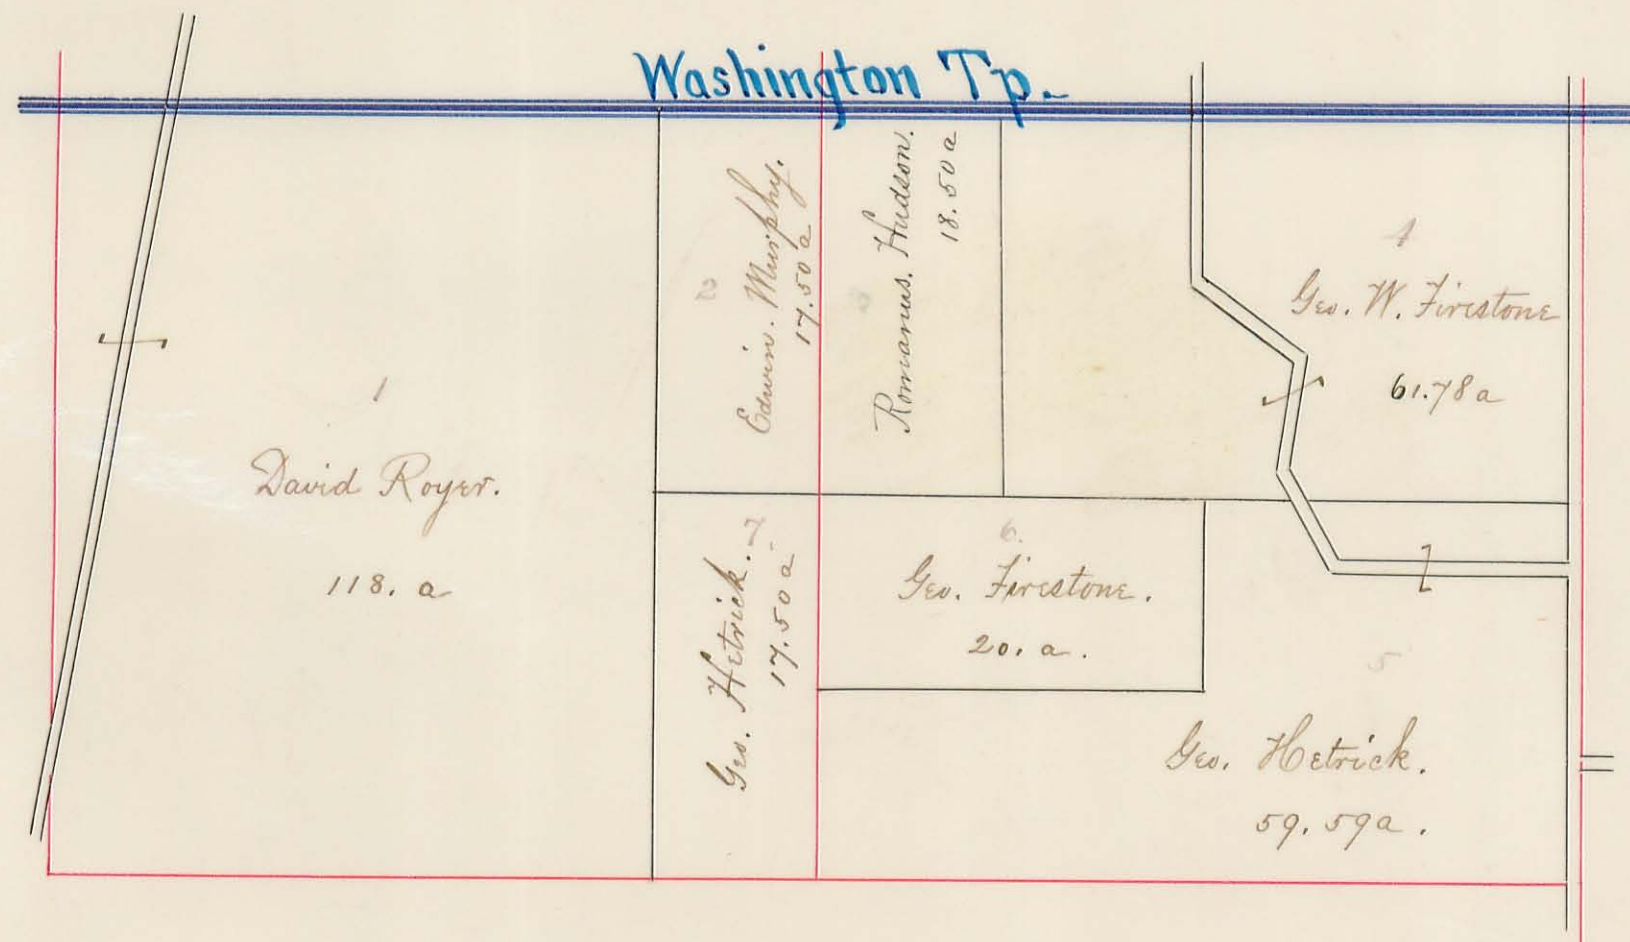 Washington Tp.
1
David Royer.
118. a
2
Edwin. Murphy.
17.50 a
3
Romanus. Hudson.
18.50 a
4
Geo. W. Firestone
61.78 a
7
Geo. Hetrick.
17.50 a
6.
Geo. Firestone.
20. a.
5
Geo. Hetrick.
59.59a.